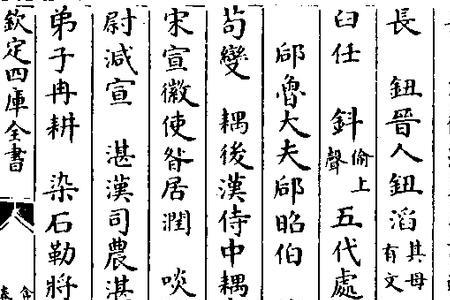 長 鈕晉人鈕滔其母有文
臼任 鈄偷上聲五代處
郈魯大夫郈昭伯
苟變 耦後漢侍中耦
宋宣徽使昝居潤 啖
尉減宣 湛漢司農湛
弟子冉耕 染石勒將
欽定四庫全書